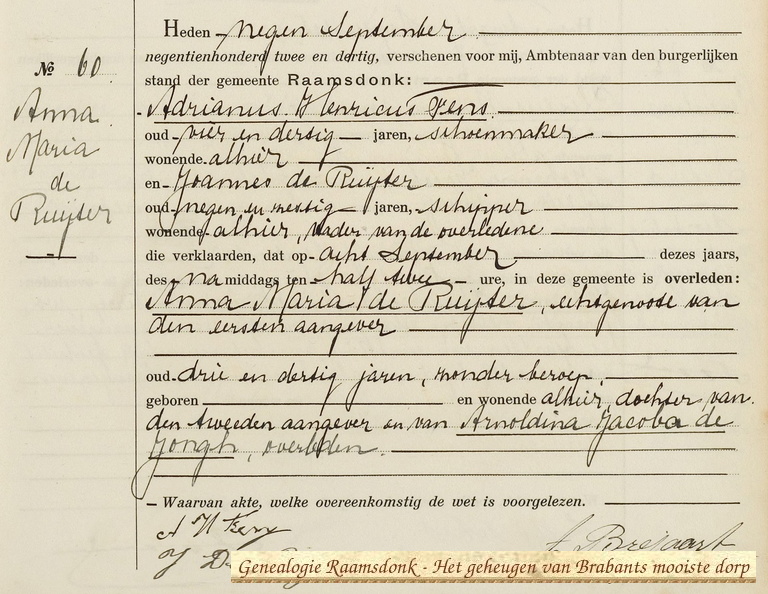 Heden negen September
negentienhonderd twee en dertig, verschenen voor mij, Ambtenaar van den burgerlijken
№ 60
stand der gemeente Raamsdonk:
Anna
Maria
de
Ruijter
Adrianus Henricus Fens
oud vier en dertig jaren, schoenmaker
wonende alhier
en Joannes de Ruijter
oud negen en zestig jaren, schipper
wonende alhier, vader van de overledene
die verklaarden, dat op acht September dezes jaars,
des namiddags ten half twee ure, in deze gemeente is overleden:
Anna Maria de Ruijter, echtgenoote van
den eersten aangever
oud drie en dertig jaren, zonder beroep,
geboren en wonende alhier, dochter van
den tweeden aangever en van Arnoldina Jacoba de
Jongh, overleden.
Waarvan akte, welke overeenkomstig de wet is voorgelezen.
A H Fens
J
Genealogie Raamsdonk - Het geheugen van Brabants mooiste dorp